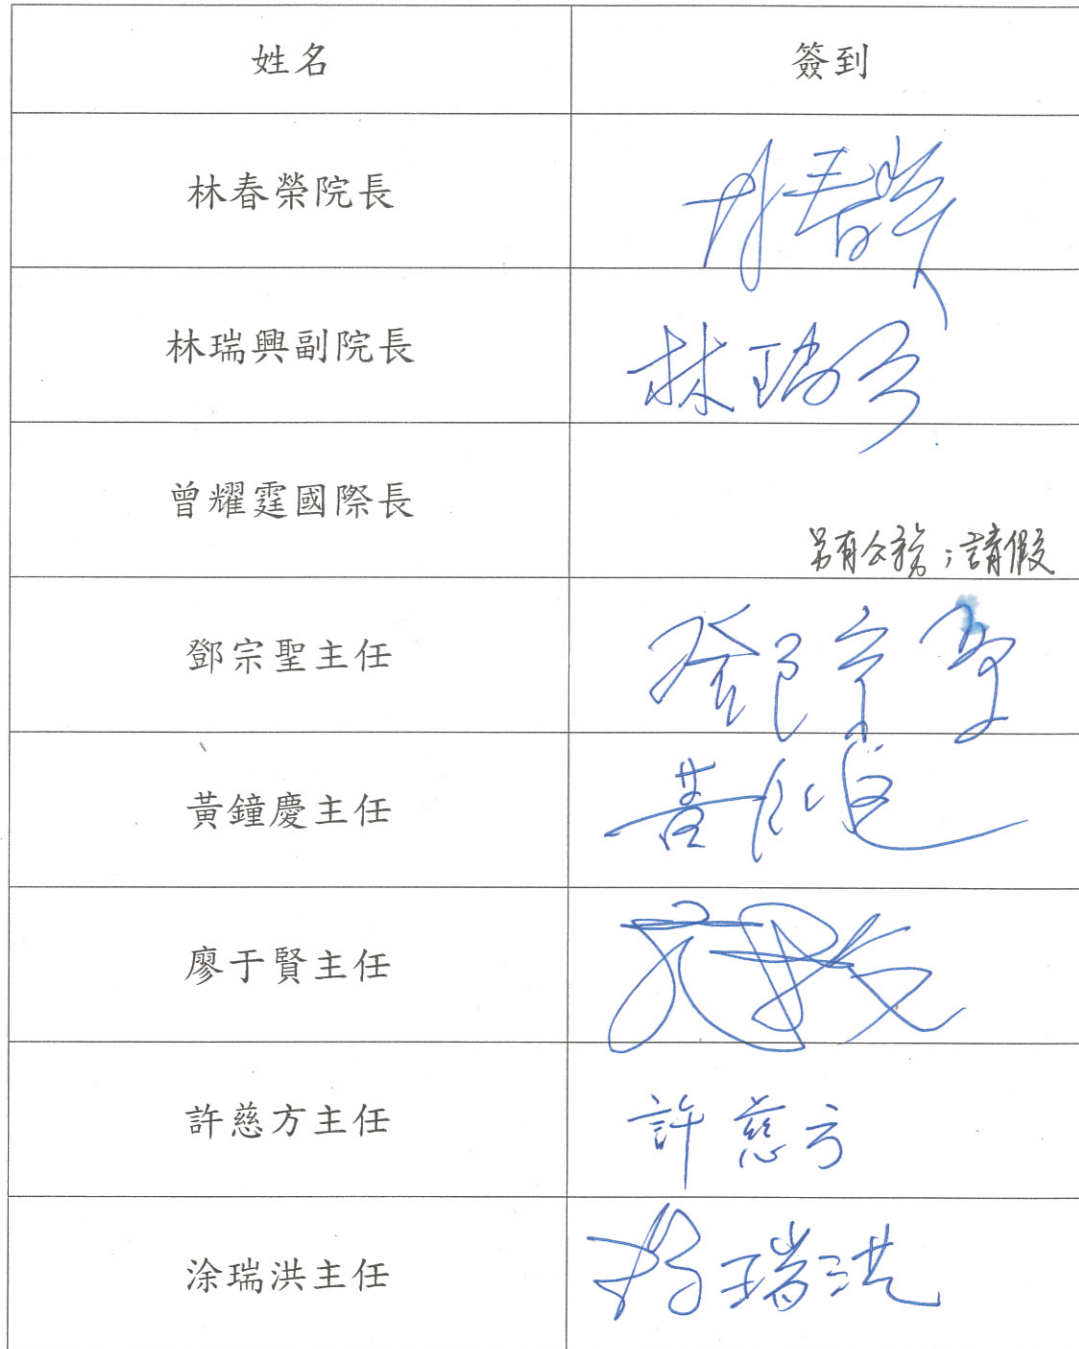 姓名 簽到
林春榮院長 林春榮
林瑞興副院長 林瑞興
曾耀霆國際長 另有公務；請假
鄧宗聖主任 鄧宗聖
黃鐘慶主任
廖于賢主任
許慈方主任 許慈方
涂瑞洪主任 涂瑞洪